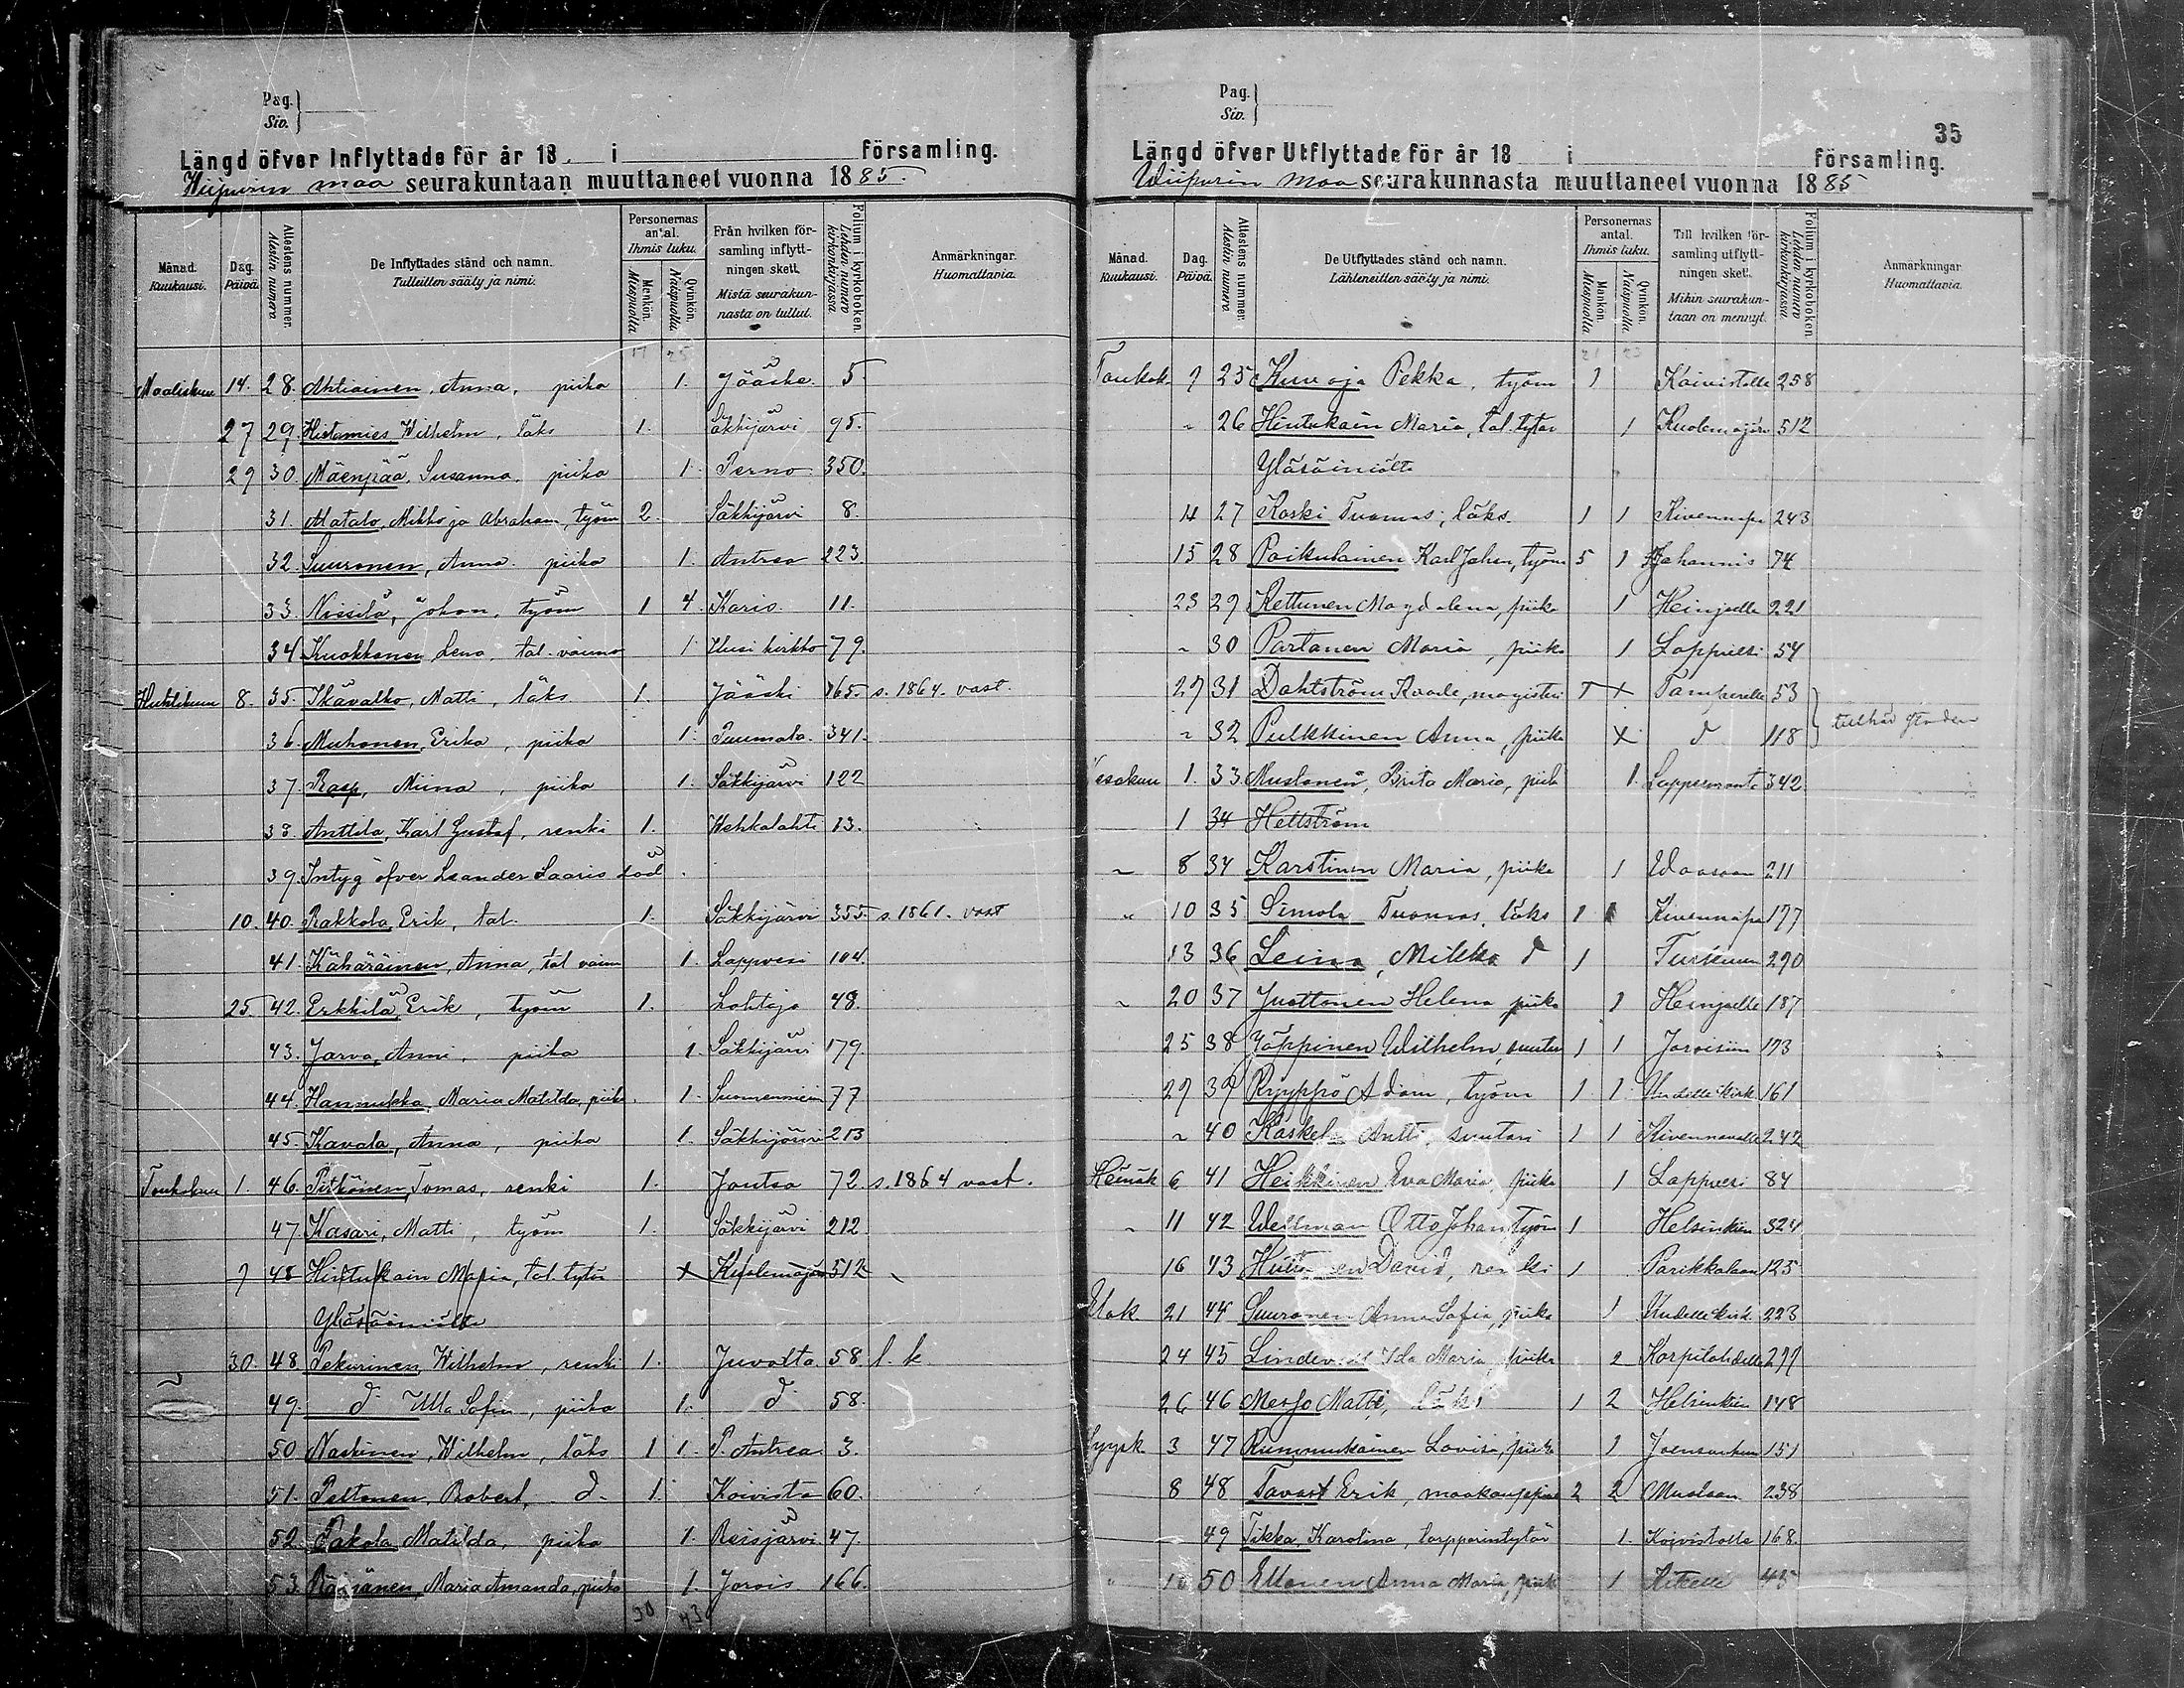 Pag.
Siv.
Längd öfver Inflyttade för år 18 i församling.
Wiipurin maa seurakuntaan muuttaneet vuonna 1885.
Månad. Kuukausi.
Dag. Päivä.
Attestens nummer. Atestin numero
De Inflyttades stånd och namn. Tulleitten sääty ja nimi.
Personernas antal. Ihmis luku.
Mankön. Miespuolta
Qvinkön. Naispuolta
Från hvilken församling inflyttningen skett. Mistä seurakunnasta on tullut.
Folium i kyrkoboken. Lehden numero kirkonkirjassa
Anmärkningar. Huomattavia.
17 25
Maaliskuu 14. 28. Ahtiainen, Anna, piika 1. Jääske. 5.
27 29. Histamies Wilhelm, läks 1. Säkkijärvi 95.
29 30. Mäenpää, Susanna, piika 1. Perno 350.
31. Matalo, Mikko ja Abraham, työm 2. Säkkijärvi 8.
32. Suuronen, Anna. piika 1. Antrea 223
33. Nissilä, Johan, työm 1 4. Karis 11.
34 Kuokkanen Lena, tal. vaimo 1 Uusi kirkko 79.
Huhtikuu 8. 35. Ikävalko, Matti, läks 1. Jääski 165. s. 1864. vast.
36. Muhonen, Erika, piika 1. Puumala 341.
37. Rasp, Miina, piika 1. Säkkijärvi 122
38. Anttila, Karl Gustaf, renki 1. Wehkalahti 13.
39. Intyg öfver Leander Saaris död.
10. 40. Rakkola, Erik, tal. 1. Säkkijärvi 355 s. 1861. vast
41. Kähäräinen, Anna, tal vaim 1. Lappvesi 104.
25. 42. Erkkilä, Erik, työm 1. Lohtaja 48.
43. Jarva, Anni, piika 1. Säkkijärvi 179.
44. Hannukka, Maria Matilda, piika 1. Suomenniemi 77
45. Kavala, Anna, piika 1. Säkkijärvi 213
Toukokuu 1. 46. Pitkänen, Tomas, renki 1. Joutsa 72 s. 1864 vast.
47. Kasari, Matti, työm 1. Säkkijärvi 212
7 48 Hintukain Maria, tal. tytär x Kuolemajär 512
Yläsäiniölt
30. 48. Pekurinen, Wilhelm, renki 1. Juvalta 58. l. k
49. d Ulla Sofia, piika 1. d 58.
50 Naskinen, Wilhelm, läks 1 1. P. Antrea. 3.
51. Peltonen, Robert, d. 1. Koivisto 60.
52. Pakola Matilda, piika 1. Reisjärvi 47.
53. Maria Amanda, piika 1. Jorois 166.
30 43
Pag.
Siv.
35
Längd öfver Utflyttade för år 18 i församling.
Wiipurin maa seurakunnasta muuttaneet vuonna 1885
Månad. Kuukausi.
Dag. Päivä.
Attestens nummer. Atestin numero
De Utflyttades stånd och namn. Lähteneitten sääty ja nimi.
Personernas antal. Ihmis luku.
Mankön. Miespuolta
Qvinkön. Naispuolta
Till hvilken församling utflyttningen skett. Mihin seurakuntaan on mennyt.
Folium i kyrkoboken. Lehden numero kirkonkirjassa
Anmärkningar. Huomattavia.
21 23
Toukok 7 25 Kuuoja Pekka, työm 1 Koivistolle 258
" 26 Hintukain Maria, tal. tytär 1 Kuolemajär 512
Yläsäiniölt
14 27 Koski Tuomas, läks. 1 1 Kivennapa 243
15 28 Poikulainen Karl Johan, työm 5 1 Johannis 74
23 29 Kettunen Magdalena, piika 1 Heinjoelle 221
" 30 Partanen Maria, piika 1 Lappvesi 54
27 31 Dahtström, magisteri Tamperelle 53
" 32 Pulkkinen Anna, piika x d 118
Kesäkuu 1. 33 Mustonen, Brita Maria, piik 1. Lappeenrant 342
1 34 Hellström
" 8 34 Karstinen Maria, piika 1 Waasaan 211
" 10 35 Simola Tuomas, läks 1 1 Kivennapa 177
13 36 Leino, Mikko d 1 Turkuun 290
" 20 37 Juottonen Helena piika 1 Heinjoelle 187
25 38 Jäppinen Wilhelm, suutari 1 1 Joroisiin 173
27 39 Ryyppö Adam, työm 1 1 Uudelle kirk 161
" 40 Kaskela Antti, suutari 1 1 Kivennavalle 242
Heinäk 6 41 Heikkinen Eva Maria, piika 1 Lappvesi 84
" 11 42 Wellman Otto Johan, työm 1 Helsinkiin 324
16 43 David, renki 1 Parikkalaan 125
Elok 21 44 Suuronen Anna Sofia, piika 1 Uudelle kirk 223
24 45 Ida Maria, piika 2 Korpilahdelle 299
26 46 Merjo Matti, läks 1 2 Helsinkiin 148
Syysk 3 47 Rummukainen Lovisa, piika 1 Joensuuhun 151
8 48 Tavast Erik, maakauppias 2 2 Muolaan 238
49 Tikka, Karolina, torpparintytär 1. Koivistolle 168.
" 50 Ellonen Anna Maria, piik 1 Kiteelle 45